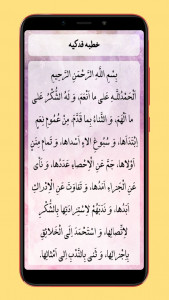 خطبه فدکیه
بِسْمِ اللَّهِ الرَّحْمَنِ الرَّحِيمِ
اَلْحَمْدُلِلَّهِ عَلى ما اَنْعَمَ، وَ لَهُ الشُّكْرُ عَلى
ما اَلْهَمَ، وَ الثَّناءُ بِما قَدَّمَ، مِنْ عُمُومِ نِعَمٍ
اِبْتَدَاَها، وَ سُبُوغِ الاءٍ اَسْداها، وَ تَمامِ مِنَنٍ
اَوْلاها، جَمَّ عَنِ الْاِحْصاءِ عَدَدُها، وَ نَأى
عَنِ الْجَزاءِ اَمَدُها، وَ تَفاوَتَ عَنِ الْاِدْراكِ
اَبَدُها، وَ نَدَبَهُمْ لِاِسْتِزادَتِها بِالشُّكْرِ
لِاِتِّصالِها، وَ اسْتَحْمَدَ اِلَى الْخَلائِقِ
بِاِجْزالِها، وَ ثَنى بِالنَّدْبِ اِلى اَمْثالِها.